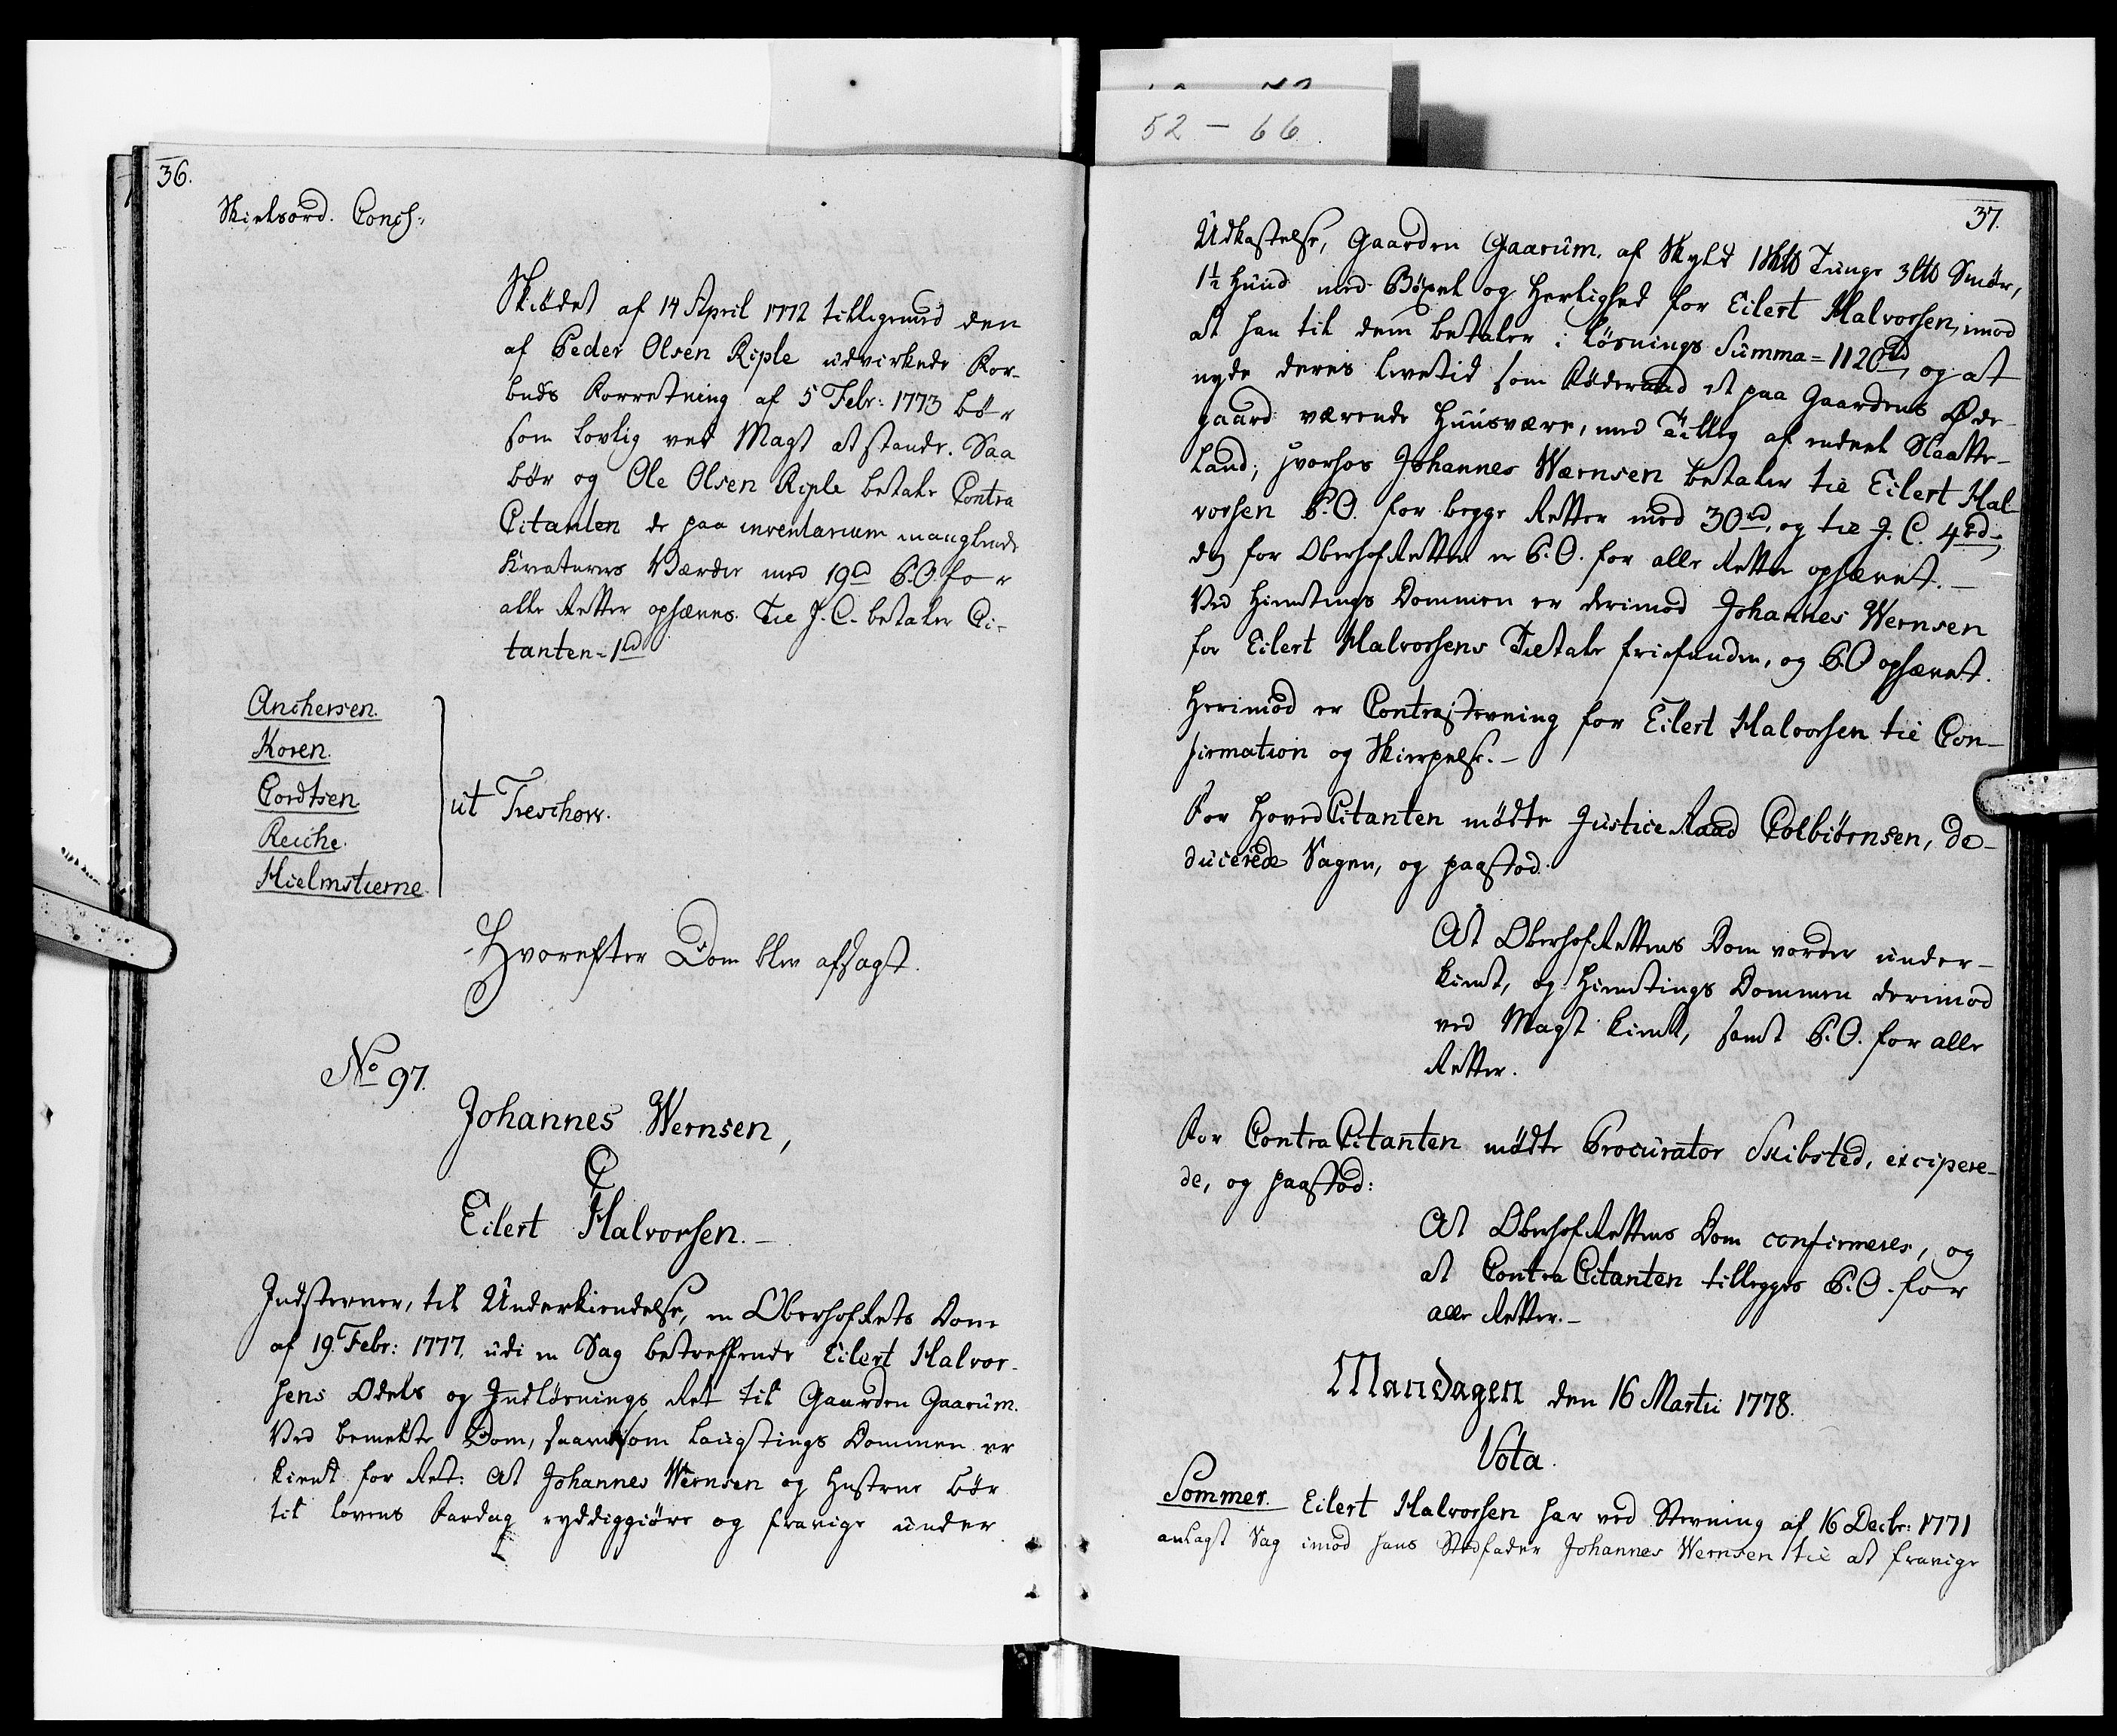 52 - 66.
36.
Skielsord. Conch:
Skiödet af 14 April 1772 tilligemed den
af Peder Olsen Riple udvirkede For-
buds Forretning af 5 Febr: 1773 bør
som lovlig ved Magt at stande. Saa
bør og Ole Olsen Riple betale Contra
Citanten de paa inventarium manglende
Kreaturers Værdie med 19rd P.O. for
alle Retter ophæves. Til J. C. betaler Ci-
tanten = 1rd
Anchersen.
Koren.
Cordtsen
Reiche.
Hielmstierne.
ut Treschow.
Hvorefter Dom blev afsagt.
No 97.
Johannes Wernsen,
C
Eilert Halvorsen. -
Indstevner, til Underkiendelse, en OberhofRets Dom
af 19. Febr: 1777. udi en Sag betreffende Eilert Halvor-
sens Odels og Indløsnings Ret til Gaarden Gaarum.
Ved bemelte Dom, saavelsom Laugtings Dommen er
kiendt for Ret: At Johannes Wernsen og Hustrue bør
til lovens Fardag ryddiggiøre og fravige under
37.
Udkastelse, Gaarden Gaarum, af Skyld Tunge 3 Smør,
1½ Huud med Böxel og Herlighed for Eilert Halvorsen, imod
at han til dem betaler i Løsnings Summa = 1120rd, og at
nyde deres livstid som Föderaad et paa Gaardens Øde-
gaard værende Huusvære, med Tillæg af endeel Slaatte-
Land; hvorhos Johannes Wærnsen betaler til Eilert Hal-
vorsen P.O. for begge Retter med 30rd, og til J. C. 4rd;
dog for OberhofRetten er P.O. for alle Retter ophævet. -
Ved Hiemtings Dommen er derimod Johannes Wernsen
for Eilert Halvorsens Tiltale friefunden, og P.O ophævet.
Herimod er ContraStevning for Eilert Halvorsen til Con-
firmation og Skierpelse. -
For HovedCitanten mødte JusticeRaad Colbiørnsen, de-
ducerede Sagen, og paastod:
At OberhofRettens Dom vorder under-
kiendt, og Hiemtings Dommen derimod
ved Magt kiendt, samt P.O. for alle
Retter.
For ContraCitanten mødte Procurator Skibsted, excipere-
de, og paastod:
At OberhofRettens Dom confirmeres, og
at ContraCitanten tillegges P.O. for
alle Retter. -
Mandagen den 16 Martii 1778.
Vota.
Sommer. Eilert Halvorsen har ved Stevning af 16 Decbr: 1771
anlagt Sag imod hans Stedfader Johannes Wernsen til at fravige